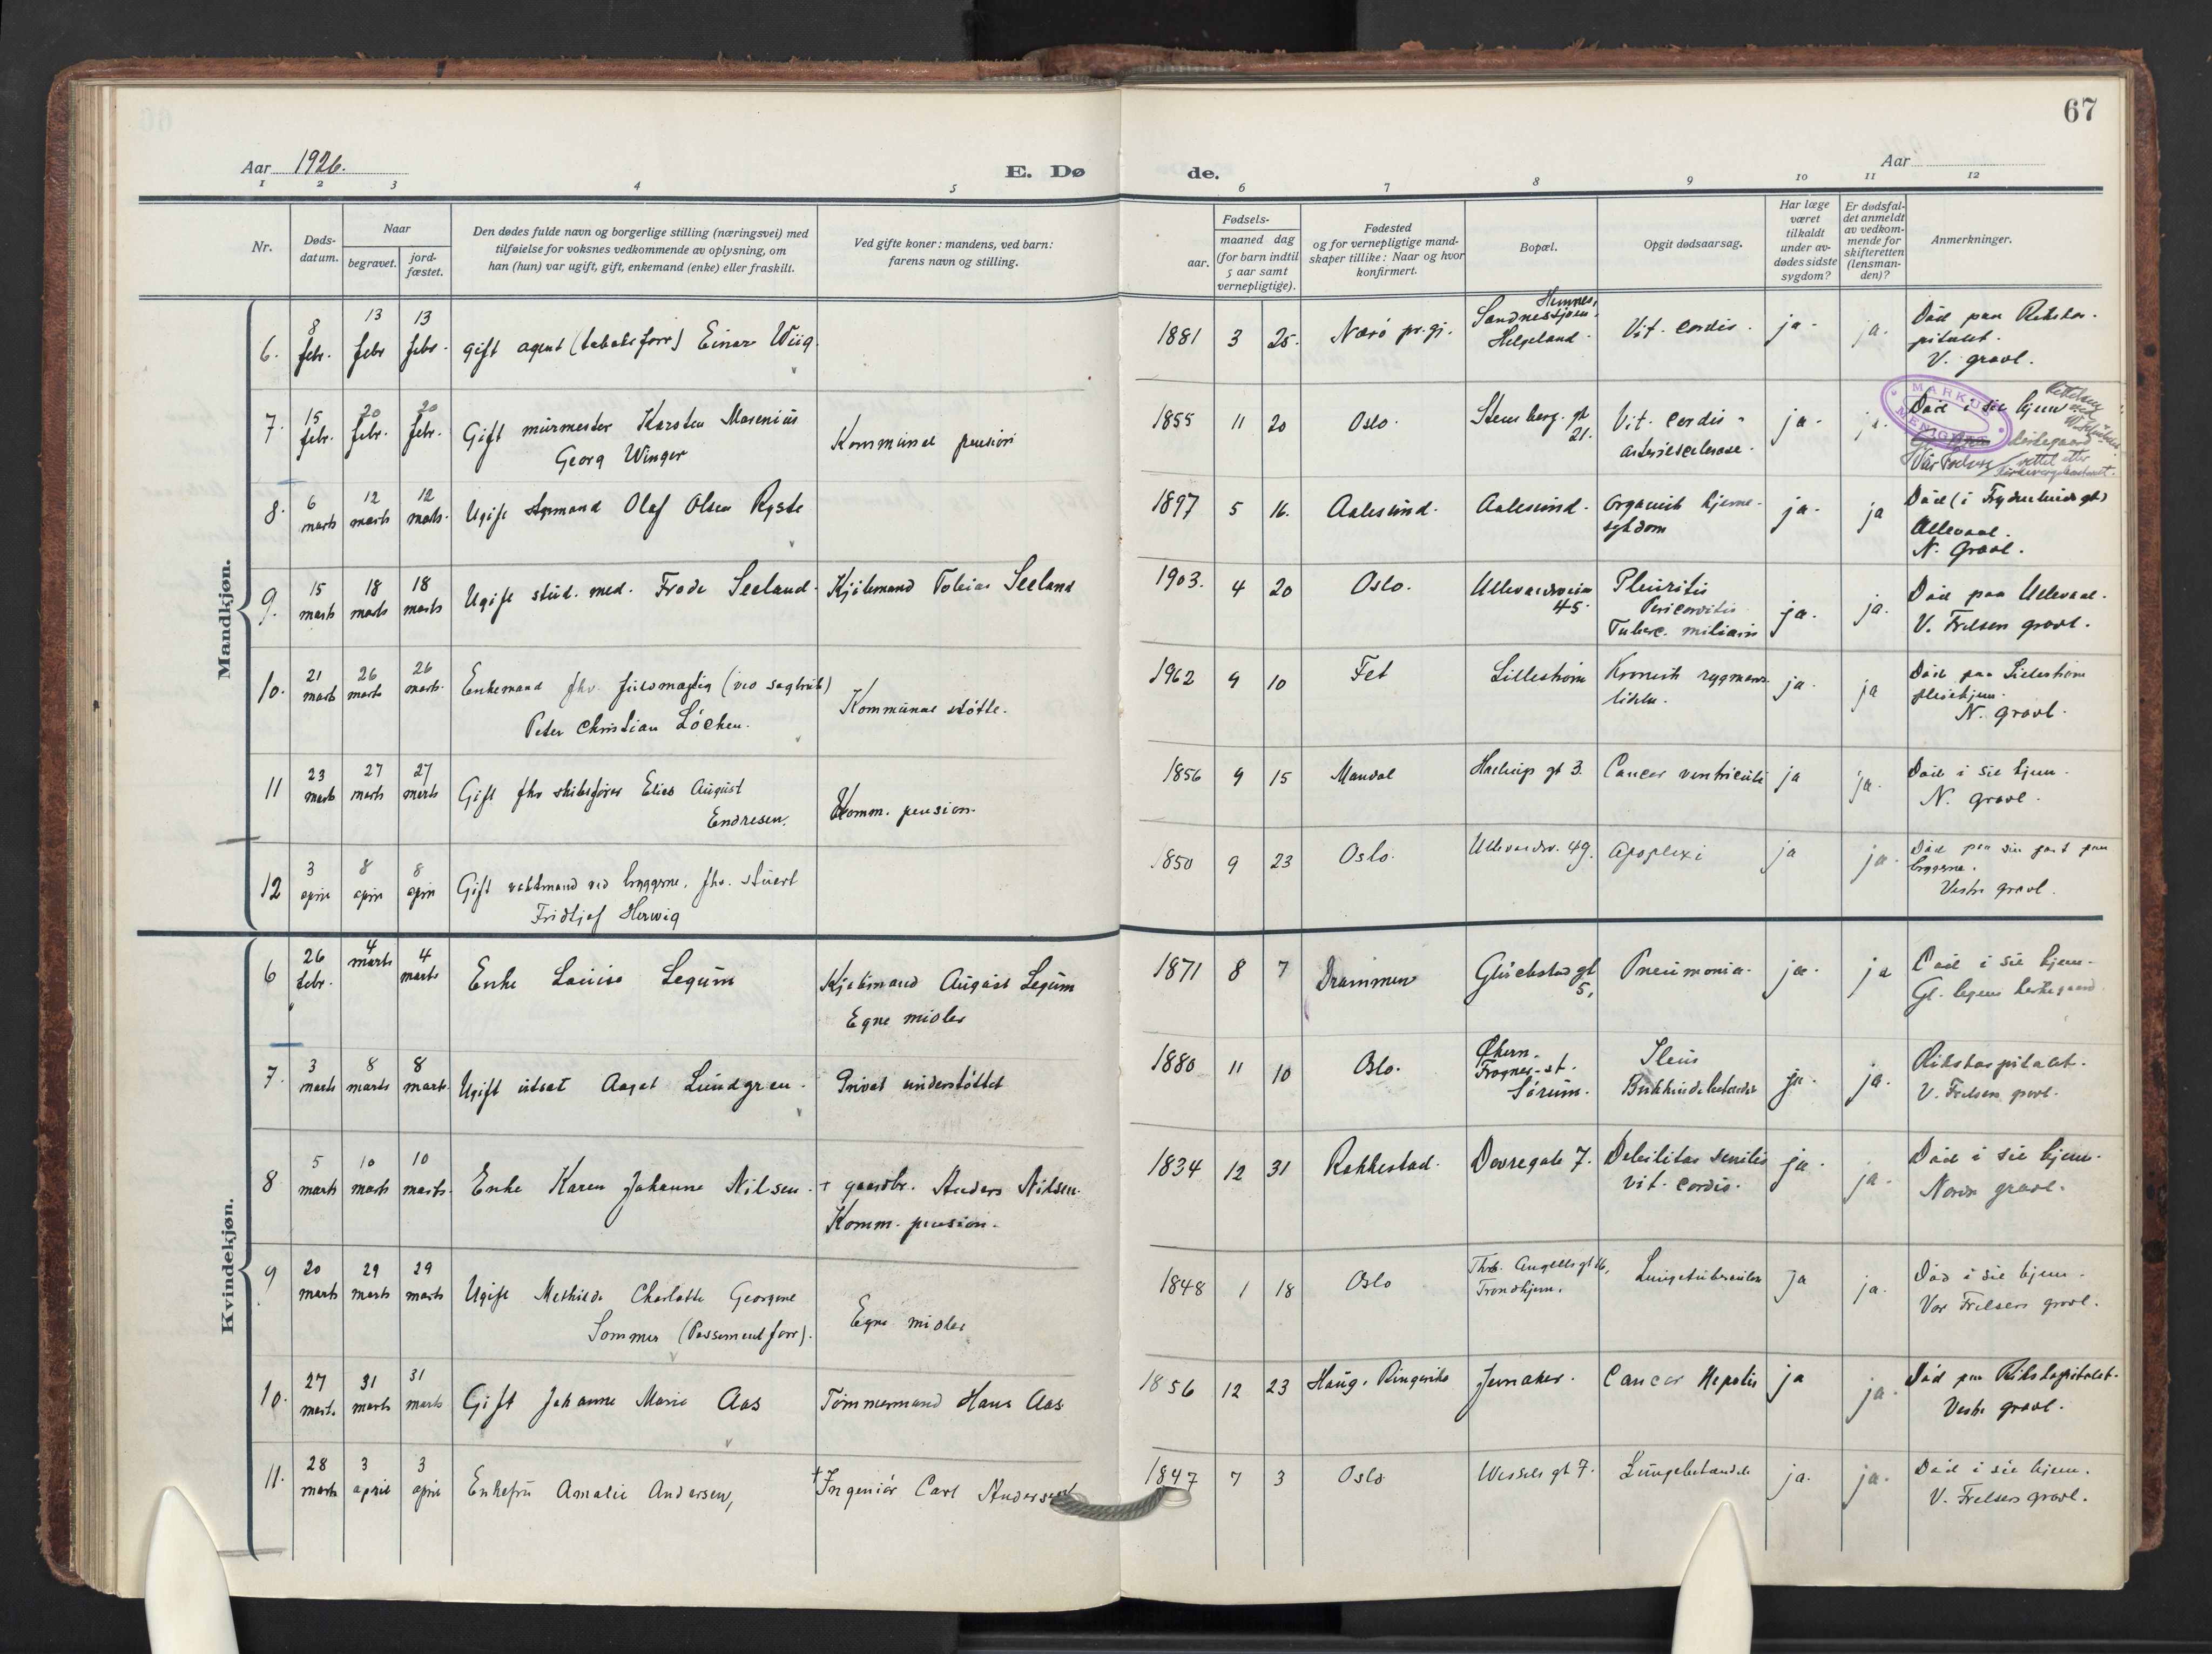 67
Aar 1926.
E. Døde.
Aar
1 2 3 4 5 6 7 8 9 10 11 12
Nr.
Døds-
datum.
Naar
begravet.
jord-
fæstet.
Den dødes fulde navn og borgerlige stilling (næringsvei) med
tilføielse for voksnes vedkommende av oplysning, om
han (hun) var ugift, gift, enkemand (enke) eller fraskilt.
Ved gifte koner: mandens, ved barn:
farens navn og stilling.
Fødsels-
aar.
maaned dag
(for barn indtil
5 aar samt
vernepligtige).
Fødested
og for vernepligtige mand-
skaper tillike: Naar og hvor
konfirmert.
Bopæl.
Opgit dødsaarsag.
Har læge
været
tilkaldt
under av-
dødes sidste
sygdom?
Er dødsfal-
det anmeldt
av vedkom-
mende for
skifteretten
(lensman-
den)?
Anmerkninger.
Mandkjøn.
6. 8 febr. 13 febr 13 febr. gift agent (tobaksforr) Einar Wiig. 1881 3 25. Nærö pr.gj. Hemnes, Sandnessjöen, Helgeland. Vit. cordis. ja. ja. Död paa Rikshos-
pitalet.
V. gravl.
7. 15 febr. 20 febr. 20 febr. Gift murmester Karsten Marenius
Georg Winger
Kommunal pension
1855 11 20 Oslo. Stensberg. gt 21. Vit. cordis -
arteriesclerose. ja. Död i sit hjem
MARKUS MENIGHET
Vår Frelsers
8. 6 marts 12 marts 12 marts. Ugift styrmand Olaf Olsen Ryste 1897 5 16. Aalesund. Aalesund. Organisk hjerne-
sykdom ja. ja Död
Ullevaal.
N. Gravl.
9. 15 marts 18 marts 18 marts Ugift stud. med. Frode Seeland. Kjöbmand Tobias Seeland 1903. 4 20 Oslo. Ullevaalsveien 45. Pleuritis
Pericarditis
Tuberc. miliaris ja. ja. Död paa Ullevaal.
V. Frelsers gravl.
10. 21 marts 26 marts 26 marts. Enkemand fhv. fuldmægtig (ved sagbruk)
Peter Christian Löchen.
Kommunal stötte.
1962 9 10 Fet Lilleström Kronisk rygmarvs-
lidelse. ja. ja Död paa Lilleström
pleiehjem.
N. gravl.
11 23 marts 27 marts 27 marts Gift fhv skibsförer Elias August
Endresen.
Komm. pension.
1856 9 15 Mandal gt 3. Cancer ventriculi ja ja. Död i sit hjem.
N. gravl.
12 3 april 8 april 8 april Gift vaktmand ved bryggerne, fhv. stuert
Fridtjof Herwig
1850 9 23 Oslo. Ullevaalsv. 49. Apoplexi ja ja. Död paa sin post paa
bryggerne.
Vestre gravl.
Kvindekjøn.
6 26 febr. 4 marts 4 marts Enke Louise Legüm Kjöbmand August Legüm
Egne midler
1871 8 7 Drammen Glückstad gt 5, Pneumonia. ja. ja Död i sit hjem.
7. 3 marts 8 marts 8 marts. Ugift Aagot Lundgren. Privat understöttet 1880 11 10 Oslo. Økern,
Frogner-st.
Sörum. Ileus
ja. ja. Rikshospitalet.
V. Frelsers gravl.
8 5 marts 10 marts 10 marts. Enke Karen Johanne Nilsen. + gaardbr. Anders Nilsen.
Komm. pension.
1834 12 31 Rakkestad. Dovregate 7. Debilitas senilis
vit. cordis. ja. ja. Död i sit hjem.
Nordre gravl.
9 20 marts 29 marts 29 marts Ugift Mathilde Charlotte Georgine
Sommer (Possement forr).
Egne midler
1848 1 18 Oslo Thos. Angells gt 16,
Trondhjem. Lungetuberculose ja ja. Död i sit hjem.
Vor Frelsers gravl.
10. 27 marts 31 marts 31 marts Gift Johanne Marie Aas Tömmermand Hans Aas 1856 12 23 Haug, Ringerike Jevnaker. Cancer Hepatis ja ja. Död paa Rikshospitalet.
Vestre gravl.
11. 28 marts 3 april 3 april Enkefru Amalie Andersen, † Ingeniör Carl Andersen 1847 7 3 Oslo Wessels gt 7. Lungebetændelse ja. ja. Död i sit hjem.
V. Frelsers gravl.